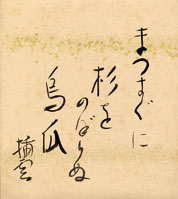 まつすぐに
杉を
のぼりぬ
烏瓜